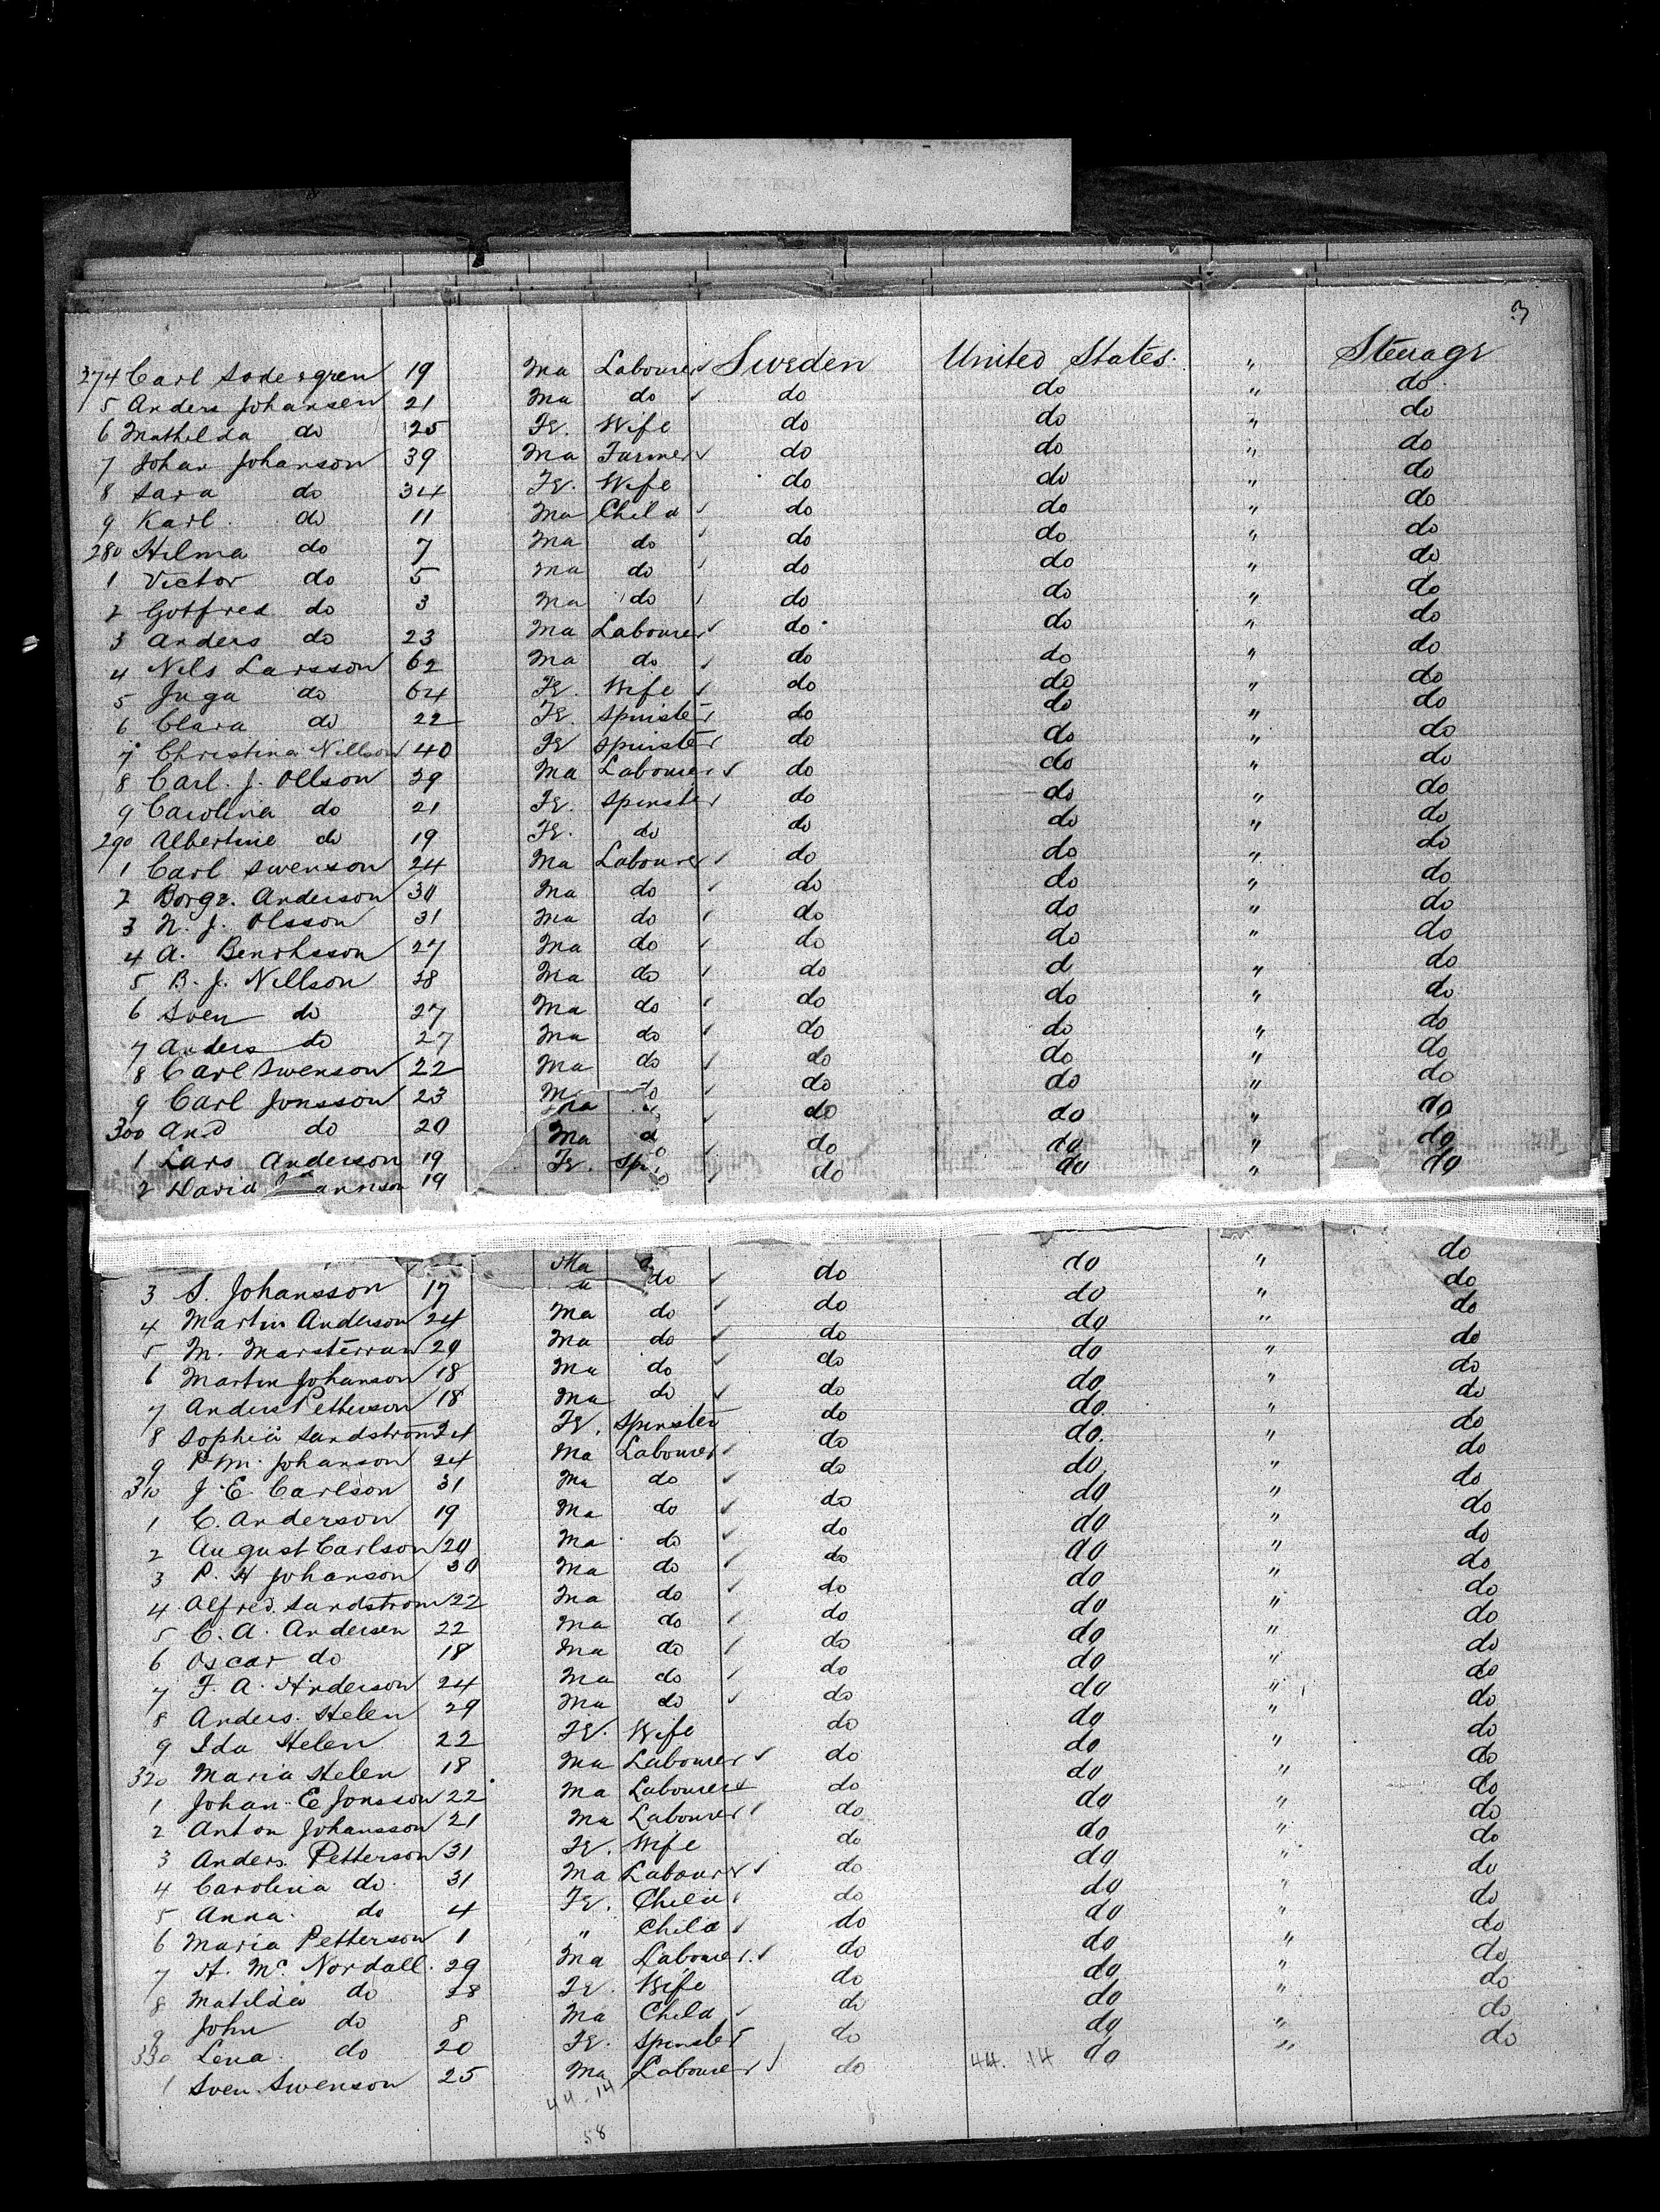 3
274 Carl Sodergren 19 Ma Labourer Sweden United States " Steuage
5 Anders Johansen 21 Ma do do do " do
6 Mathilda do 25 Fe. Wife do do " do
7 Johan Johanson 39 Ma Farmer do do " do
8 Sara do 34 Fe. Wife do do " do
9 Karl do 11 Ma Child do do " do
280 Hilma do 7 Ma do do do " do
1 Victor do 5 Ma do do do " do
2 Gotfred do 3 Ma do do do " do
3 Anders do 23 Ma Labourer do do " do
4 Nils Larsson 62 Ma do do do " do
5 Inga do 64 Fe. Wife do do " do
6 Clara do 22 Fe. Spinster do do " do
7 Christina Nillson 40 Fe Spinster do do " do
8 Carl. J. Ollson 29 Ma Labourer do do " do
9 Carolina do 21 Fe. Spinster do do " do
290 Albertine do 19 Fe. do do do " do
1 Carl Swenson 24 Ma Labourer do do " do
2 Borge. Anderson 30 Ma do do do " do
3 N. J. Olsson 31 Ma do do do " do
4 A. 27 Ma do do do " do
5 B. J. Nillson 38 Ma do do d " do
6 Sven do 27 Ma do do do " do
7 Anders do 27 Ma do do do " do
8 Carl Swenson 22 Ma do do do " do
9 Carl Jonsson 23 do do " do
300 And do 20 Ma do do " do
1 Lars Anderson 19 Ma do do " do
2 David 19 Fe. Sp do do " do
Ma do " do
3 S. Johansson 17 do do do " do
4 Martin Anderson 24 Ma do do do " do
5 M. 29 Ma do do do " do
6 Martin Johanson 18 Ma do do do " do
7 Anders Petterson 18 Ma do do do " do
8 Sophia Sandstrom 24 Fe. Spinster do do " do
9 P. M. Johanson 24 Ma Labourer do do " do
310 J. E. Carlson 31 Ma do do do " do
1 C. Anderson 19 Ma do do do " do
2 August Carlson 20 Ma do do do " do
3 P. H Johanson 30 Ma do do do " do
4 Alfred. Sandstrom 22 Ma do do do " do
5 C. A. Andersen 22 Ma do do do " do
6 Oscar do 18 Ma do do do " do
7 F. A. Anderson 24 Ma do do do " do
8 Anders. Helen 29 Ma do do do " do
9 Ida Helen 22 Fe. Wife do do " do
320 Maria Helen 18 Ma Labourer do do " do
1 Johan E Jonsson 22 Ma Labourer do do " do
2 Anton Johansson 21 Ma Labourer do do " do
3 Anders Petterson 31 Fe. Wife do do " do
4 Carolina do. 31 Ma Labourer do do " do
5 Anna. do 4 Fe. Child do do " do
6 Maria Petterson 1 " Child do do " do
7 A. Mc. Nordall. 29 Ma Labourer. do do " do
8 Matilda do 28 Fe. Wife do do " do
9 John do 8 Ma Child do do " do
330 Lena. do 20 Fe. Spinster do do " do
1 Sven. Swenson 25 Ma Labourer do 44. 14 do
44. 14
58